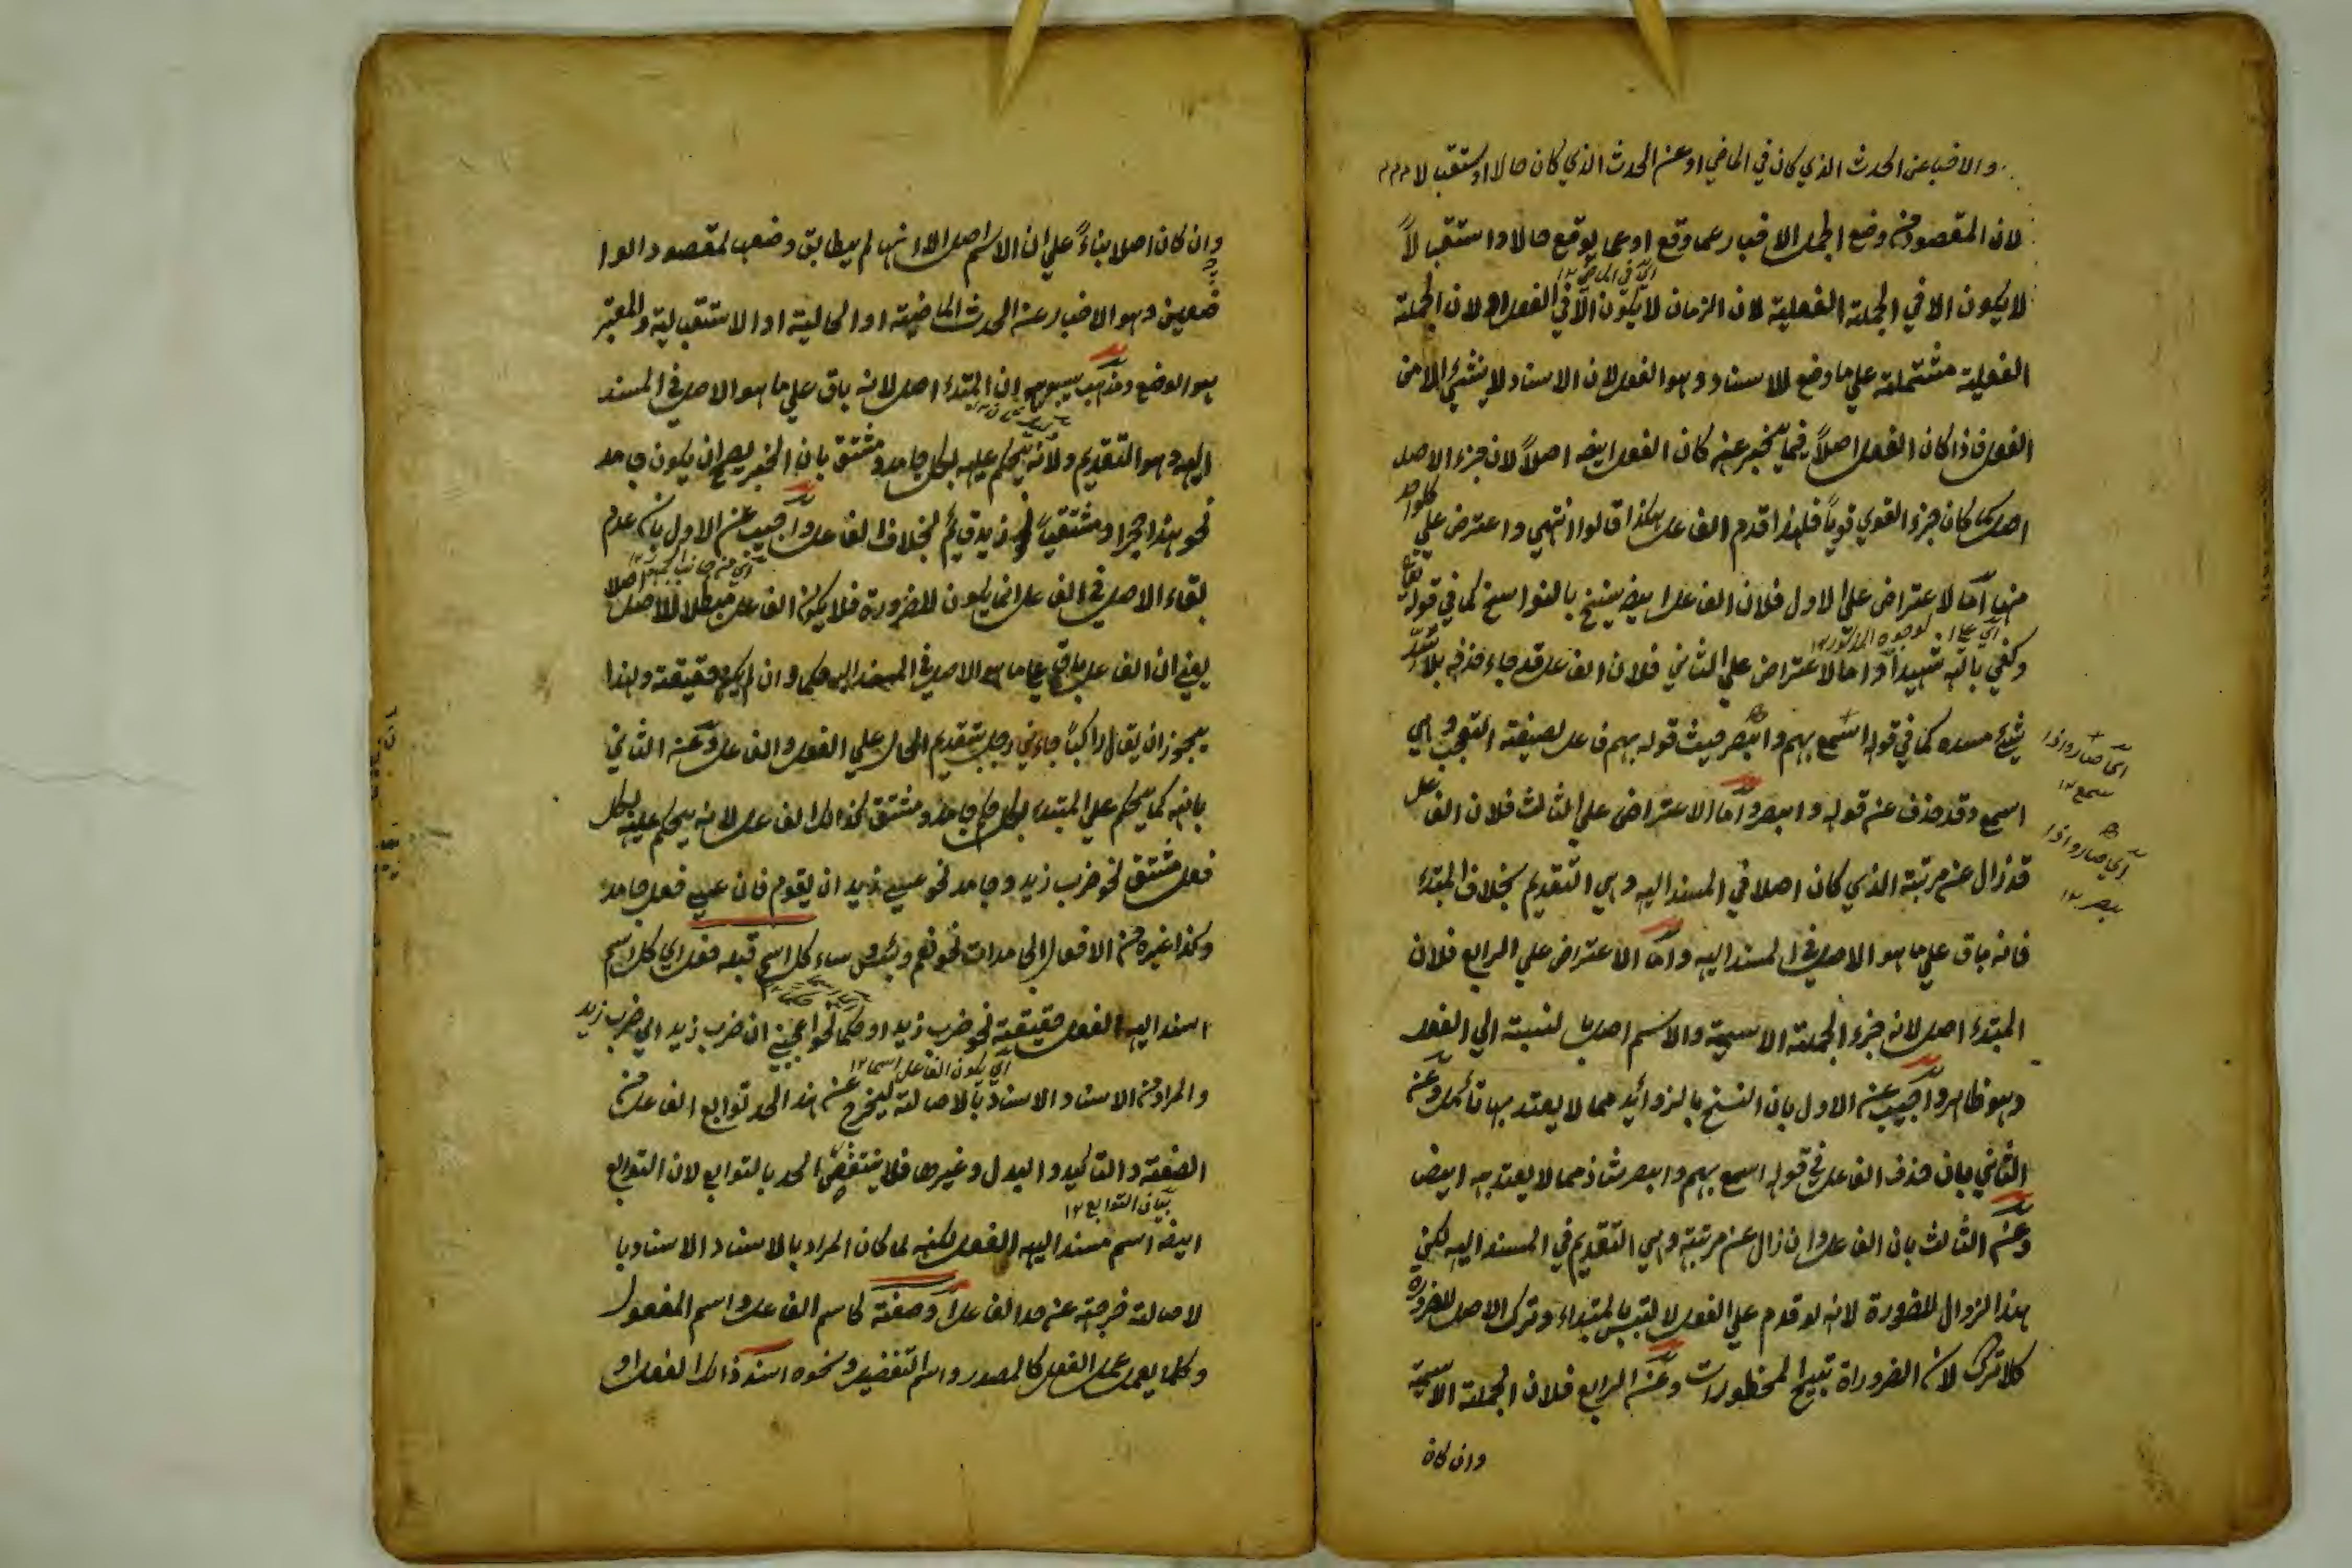 والاخبار عن الحدث الذي كان في الماضي او عن الحدث الذي كان حالا او استقبالا
لان المقصود من وضع الجمل الاخبار عما وقع او عما يوقع حالا واستقبالاً
اي في الماضي ١٢
لا يكون الا في الجملة الفعلية لان الزمان لا يكون الا في الفعل ولان الجملة
الفعلية مشتملة علي ما وضع للاسناد وهو الفعل لان الاسناد لا ينشئ الا من
الفعل فاذا كان الفعل اصلاً فيما يخبر عنه كان الفعل ايضه اصلاً لان جزء الاصل
اصل كما كان جزء القوي قوياً فلهذا قدم الفاعل هكذا قالوا انتهي واعترض علي كلواحد
منها اما لاعتراض علي الاول فلان الفاعل ايضه ينسخ بالنواسخ كما في قوله تعالي
اي علي الوجوه المذكور ١٢
وكفي بالله شهيداً واما لاعتراض علي الثاني فلان الفاعل قد جاء حذفه بلا سد
شيئ مسده كما في قوله اسمع بهم وابصر حيث قوله بهم فاعل لصيغة التعجب وهي
اي صاروا ذا
سمع ١٢
اسمع وقد حذف عن قوله وابصر واما الاعتراض علي الثالث فلان الفاعل
اي صاروا ذا
بصر ١٢
قد زال عن مرتبة الذي كان اصلا في المسند اليه وهي التقديم بخلاف المبتدء
فانه باق علي ما هو الاصل في المسند اليه واما الاعتراض علي الرابع فلان
المبتدء اصل لانه جزء الجملة الاسمية والاسم اصل بالنسبة الي الفعل
وهو ظاهر واجيب عن الاول بان النسخ بالزوائد مما لا يعتد بها تأمل وعن
الثاني بان حذف الفاعل في قوله اسمع بهم وابصر شاذ مما لا يعتد به ايضه
وعن الثالث بان الفاعل وان زال عن مرتبته وهي التقديم في المسند اليه لكن
هذا الزوال للضرورة لانه لو قدم علي الفعل لالتبس بالمبتداء وترك الاصل للضرورة
كلا ترك لان الضروراة تبيح المحظورات وعن الرابع فلان الجملة الاسمية
وان كان
وان كان اصلا بناءً علي ان الاسم اصل الا انها لم يطابق وضعه لمقصود الوا
ضعين وهو الاخبار عن الحدث الماضية او الحالية او الاستقبالية والمعتبر
هو الوضع ومذهب سيبويه ان المبتدء اصل لانه باق علي ما هو الاصل في المسند
اليه وهو التقديم ولانه يحكم عليه بكل جامد ومشتق بان الخبر يصح ان يكون جامد
نحو هذا حجر او مشتقاً نحو زيد قائم بخلاف الفاعل واجيب عن الاول بان عدم
بقاء الاصل في الفاعل انما يكون للضرورة فلا يكون الفاعل مبطلا للاصل اصلا
يعني ان الفاعل باق علي ما هو الاصل في المسند اليه حكما وان لم يكن حقيقة ولهذا
يجوز ان يقال راكباً جاءني رجل بتقديم الحال علي الفعل والفاعل وعن الثاني
بانه كما يحكم علي المبتداء بكل حكم جامد ومشتق كذالك الفاعل لانه يحكم عليه بكل
فعل مشتق نحو ضرب زيد وجامد نحو عسي زيد ان يقوم فان عسي فعل جامد
وكذا غيره من الافعال الجامدات نحو نعم وبئس وساء كل اسم قبله فعل اي كل اسم
اسند اليه الفعل حقيقة نحو ضرب زيد او حكما نحو اعجبني ان ضرب زيد اي ضرب زيد
اي يكون الفاعل اسما ١٢
والمراد من الاسناد الاسناد بالاصالة ليخرج عن هذا الحد توابع الفاعل من
الصفة والتاكيد والبدل وغيرها فلا ينتقض الحد بالتوابع لان التوابع
بيان التوابع ١٢
ايضه اسم مسند اليه الفعل لكنه لما كان المراد بالاسناد الاسناد با
لاصالة خرجته عن حد الفاعل او صفة كاسم الفاعل واسم المفعول
وكلما يعمل عمل الفعل كالمصدر واسم التفضيل ونحوه اسند ذالك الفعل او